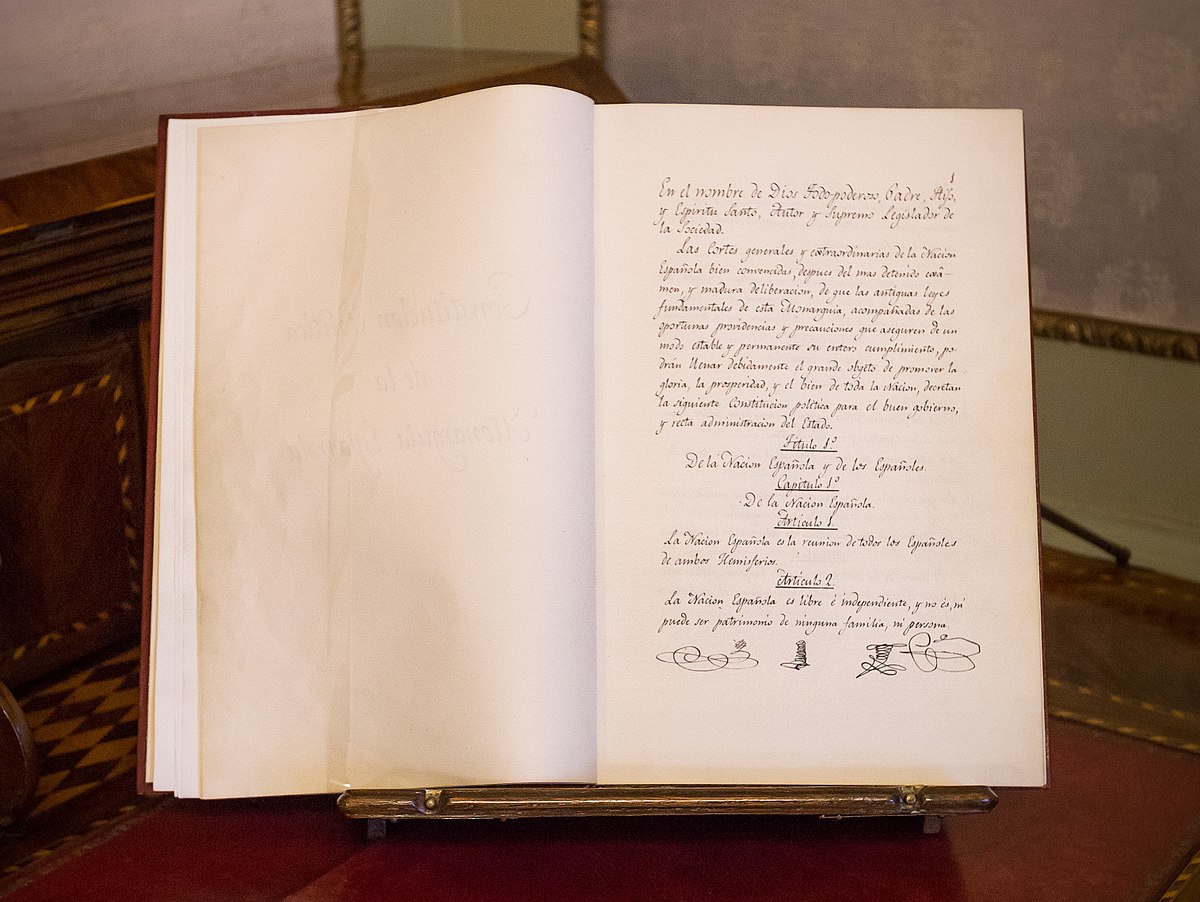 1
En el nombre de Dios Todo-poderoso, Padre, Hijo,
y Espiritu Santo, Autor y Supremo Legislador de
la Sociedad.
Las Cortes generales y extraordinarias de la Nacion
Española bien convencidas, despues del mas detenido exâ-
men, y madura deliberacion, de que las antiguas leyes
fundamentales de esta Monarquia, acompañadas de las
oportunas providencias y precauciones que aseguren de un
modo estable y permanente su entero cumplimiento, po-
drán llenar debidamente el grande objeto de promover la
gloria, la prosperidad, y el bien de toda la Nacion, decretan
la siguiente Constitucion politica para el buen gobierno,
y recta administracion del Estado.
Titulo 1.º
De la Nacion Española y de los Españoles.
Capitulo 1.º
De la Nacion Española.
Articulo 1.
La Nacion Española es la reunion de todos los Españoles
de ambos Hemisferios.
Articulo 2.
La Nacion Española es libre é independiente, y no es, ni
puede ser patrimonio de ninguna familia, ni persona.